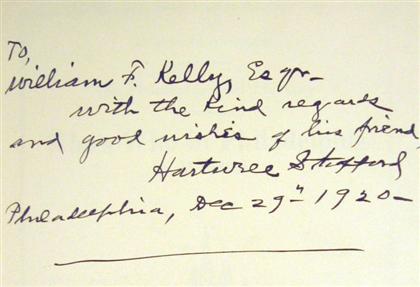 To,
William F. Kelly, Esqr-
with the kind regards
and good wishes of his friend,
Hartwell Stafford
Philadelphia, Dec 29th 1920-